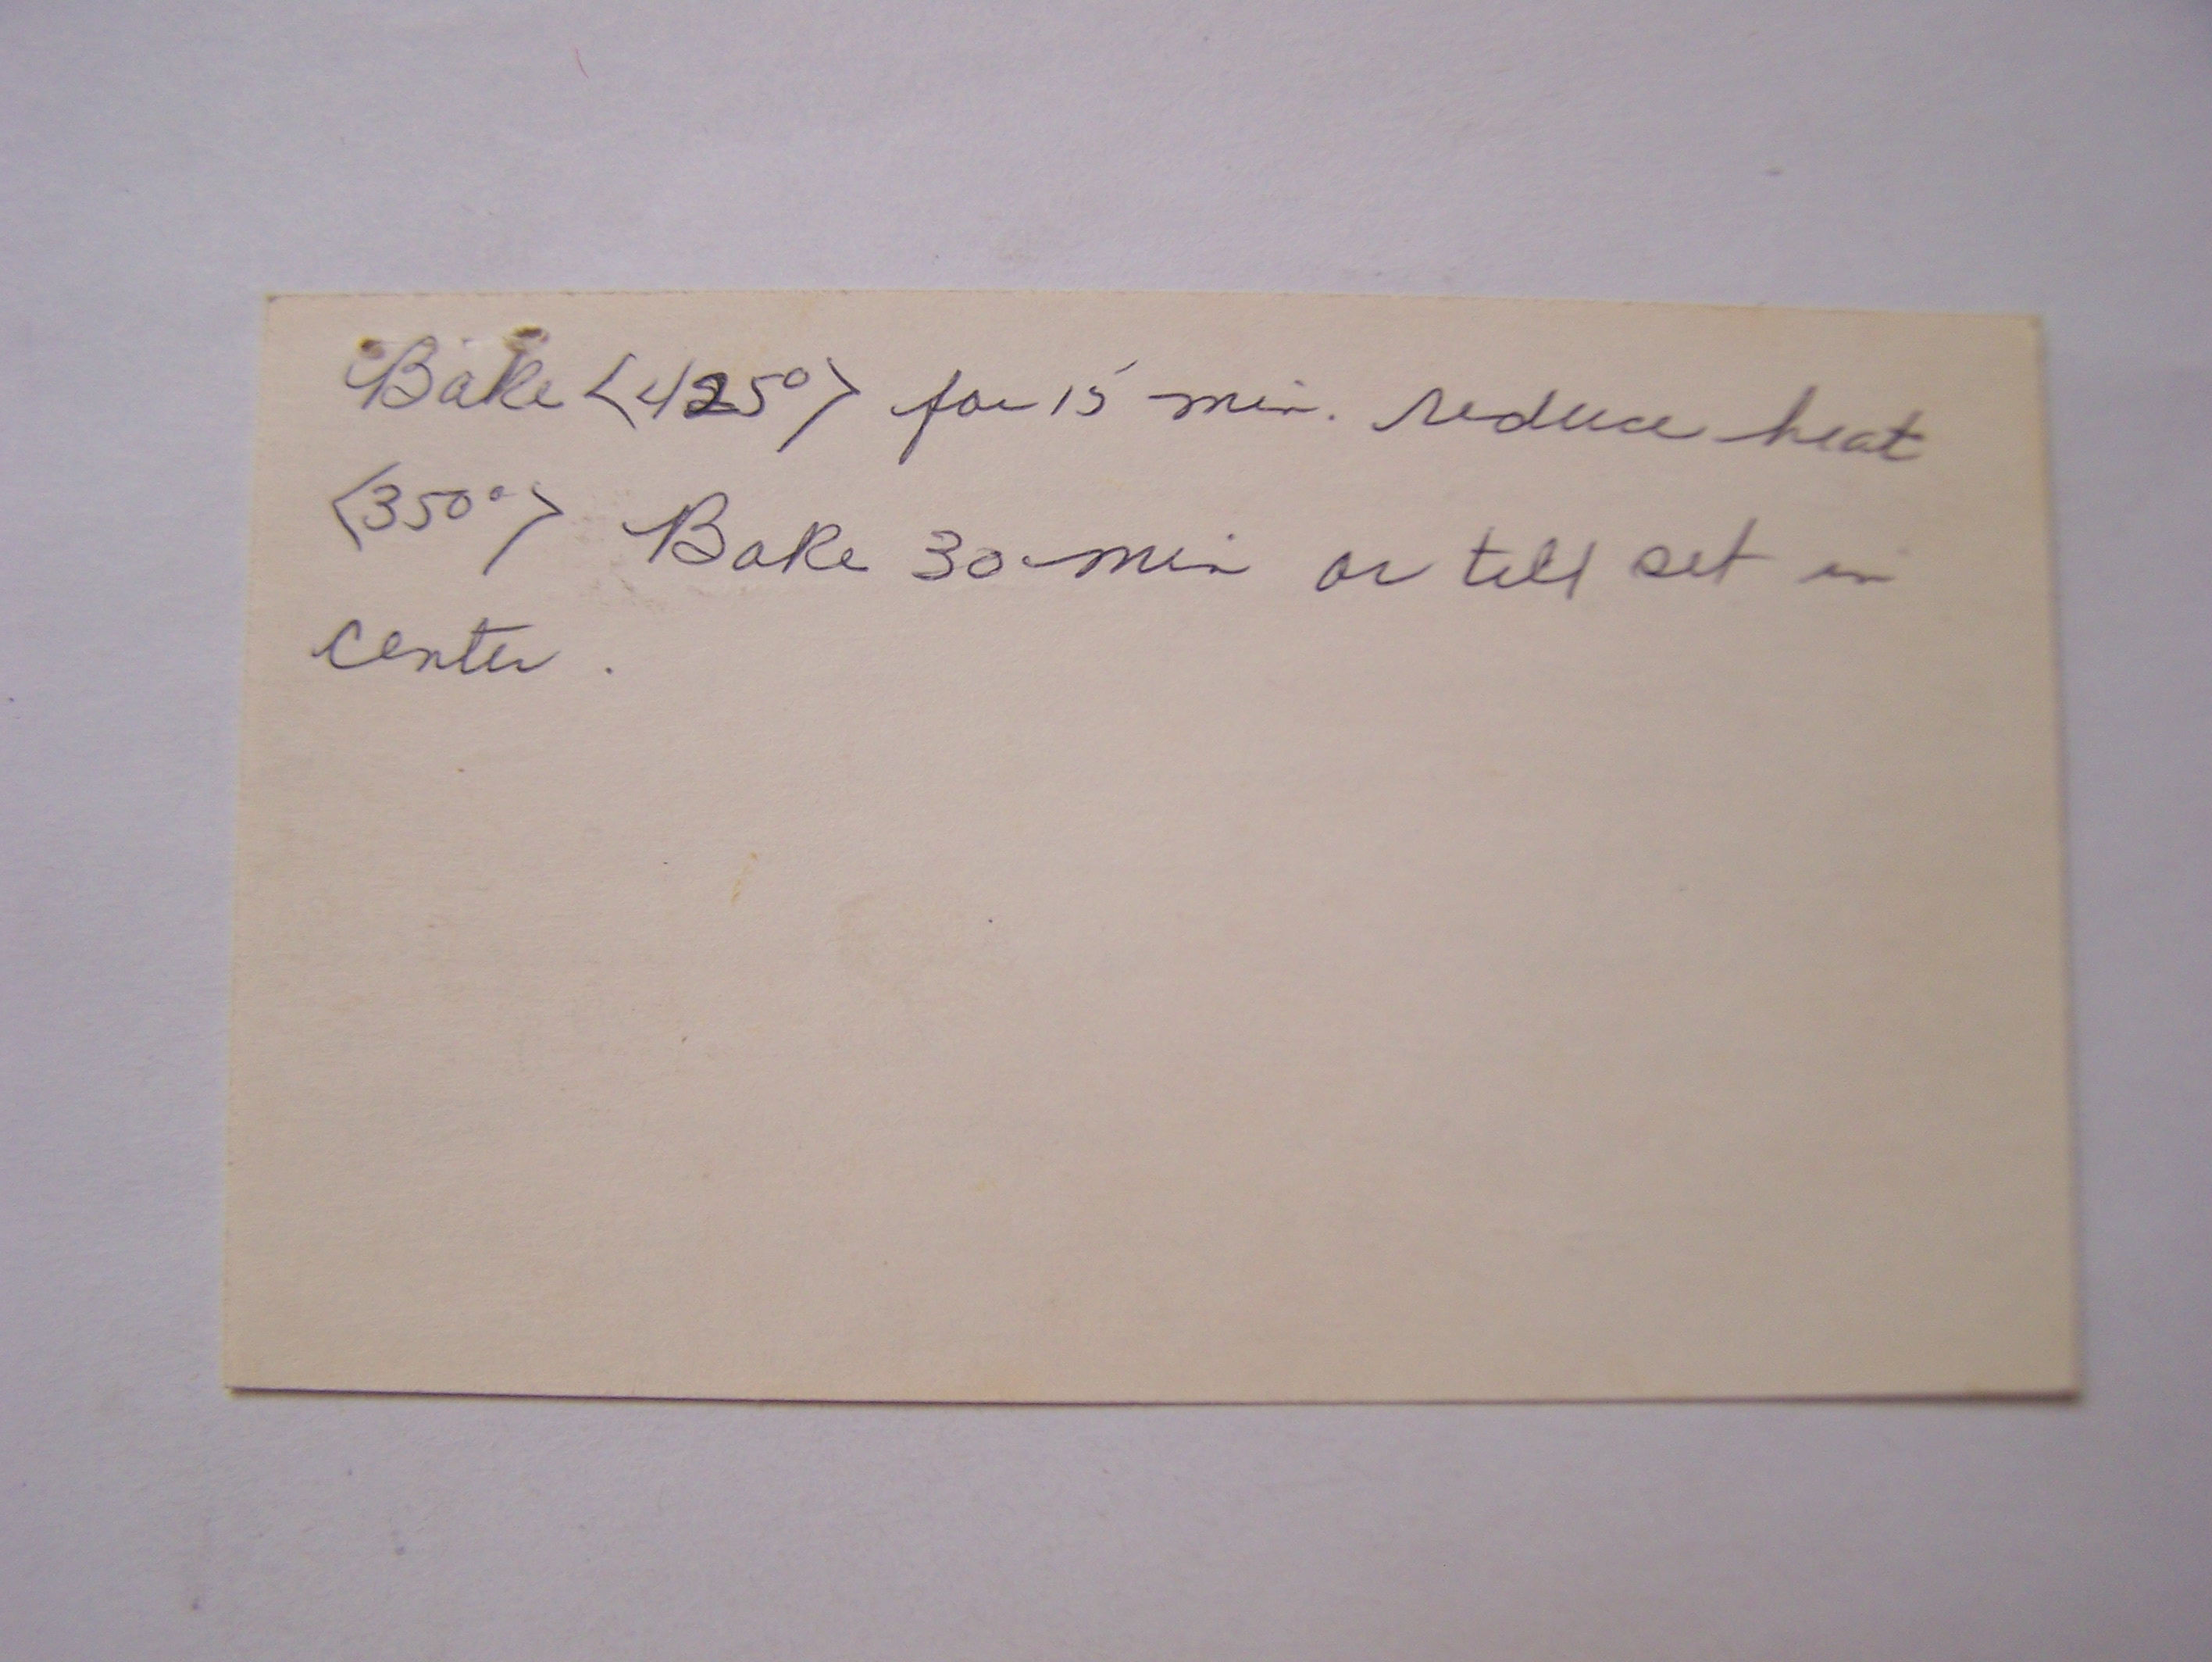 Bake <425°> for 15 min. reduce heat
<350°> Bake 30 min or till set in
center.